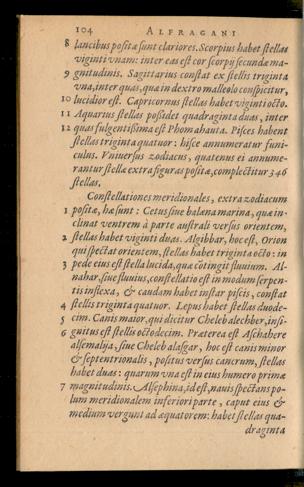 104 ALFRAGANI
8 lancibus positæ sunt clariores. Scorpius habet stellas
viginti vnam: inter eas est cor scorpij secundæ ma-
9 gnitudinis. Sagittarius constat ex stellis triginta
vna, inter quas, quæ in dextro malleolo conspicitur,
10 lucidior est. Capricornus stellas habet viginti octo.
11 Aquarius stellas possidet quadraginta duas, inter
12 quas fulgentissima est Phomahauta. Pisces habent
stellas triginta quatuor: hisce annumeratur funi-
culus. Vniuersus zodiacus, quatenus ei annume-
rantur stellæ extra figuras positæ, complectitur 346
stellas.
Constellationes meridionales, extra zodiacum
1 positæ, hæ sunt: Cetus siue balæna marina, quæ in-
clinat ventrem à parte australi versus orientem,
2 stellas habet viginti duas. Algibbar, hoc est, Orion
qui spectat orientem, stellas habet triginta octo: in
3 pede eius est stella lucida, quæ cõtingit fluuium. Al-
nahar, siue fluuius, constellatio est in modum serpen-
tis inflexa, & caudam habet instar piscis, constat
4 stellis triginta quatuor. Lepus habet stellas duode-
5 cim. Canis maior, qui dicitur Cheleb alechber, insi-
6 gnitus est stellis octodecim. Præterea est Aschahere
alsemalija, siue Cheleb alasgar, hoc est canis minor
& septentrionalis, positus versus cancrum, stellas
habet duas: quarum vna est in eius humero primæ
7 magnitudinis. Alsephina, id est, nauis spectans po-
lum meridionalem inferiori parte, caput eius &
medium vergunt ad æquatorem: habet stellas qua-
draginta